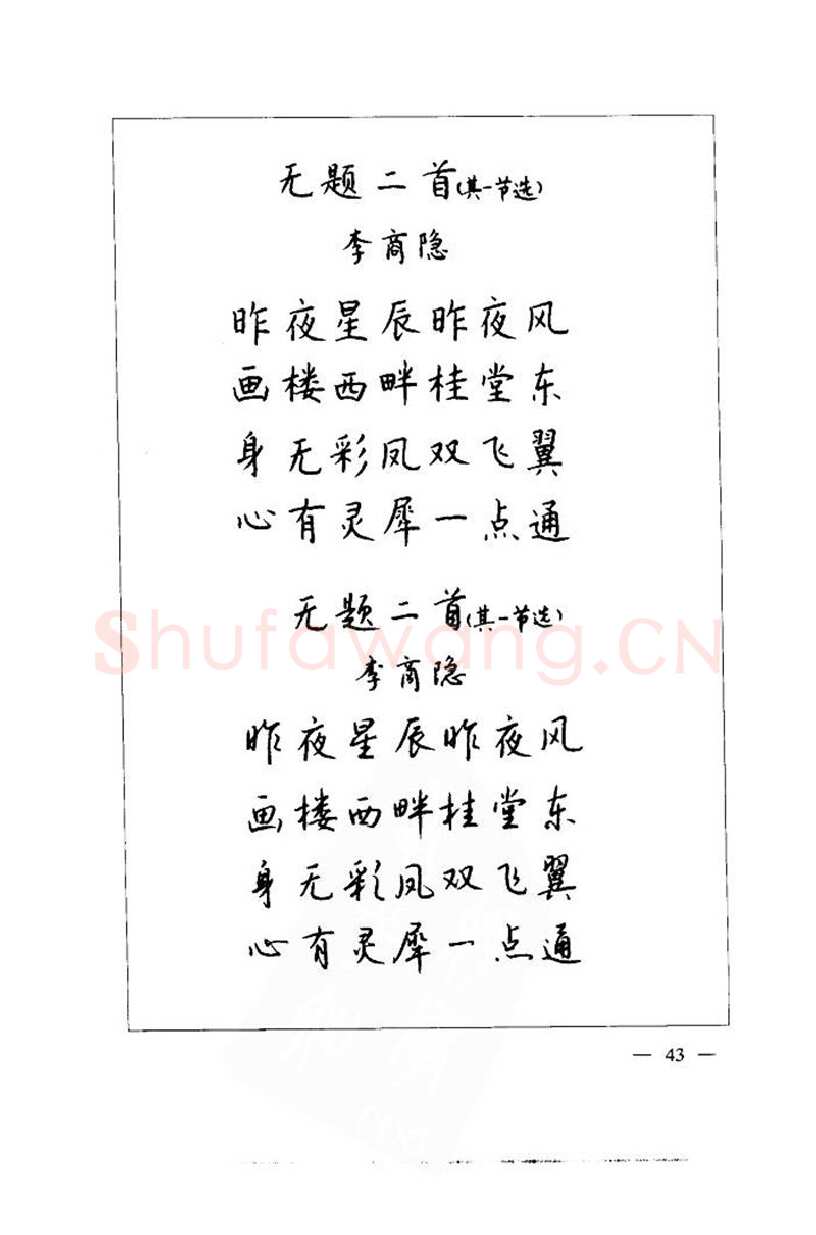 无题二首(其一节选)
李商隐
昨夜星辰昨夜风
画楼西畔桂堂东
身无彩凤双飞翼
心有灵犀一点通
无题二首(其一节选)
Shufawang.CN
李商隐
昨夜星辰昨夜风
画楼西畔桂堂东
身无彩凤双飞翼
心有灵犀一点通
— 43 —